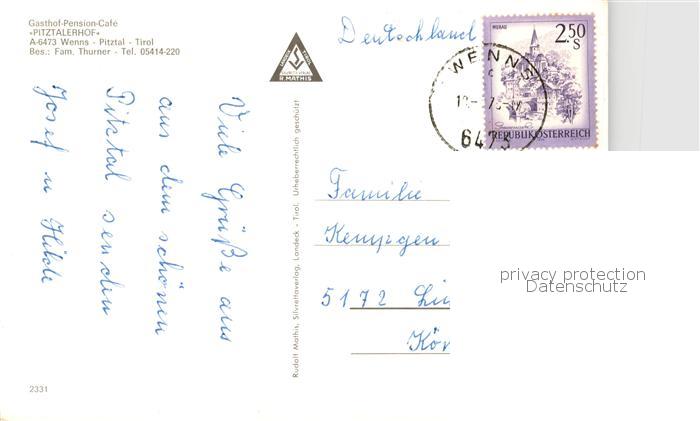 Gasthof-Pension-Café
»PITZTALERHOF«
A-6473 Wenns - Pitztal - Tirol
Bes.: Fam. Thurner - Tel. 05414-220
Viele Grüße aus
aus dem schönen
Pitztal senden
Josef u Hilde
2331
R. MATHIS
Rudolf Mathis, Silvrettaverlag, Landeck - Tirol. Urheberrechtlich geschützt
Deutschland
MURAU
2.50
S
REPUBLIK ÖSTERREICH
WENNS
c
6473
Familie
Kempgen
5172 Lin
Kör
privacy protection
Datenschutz